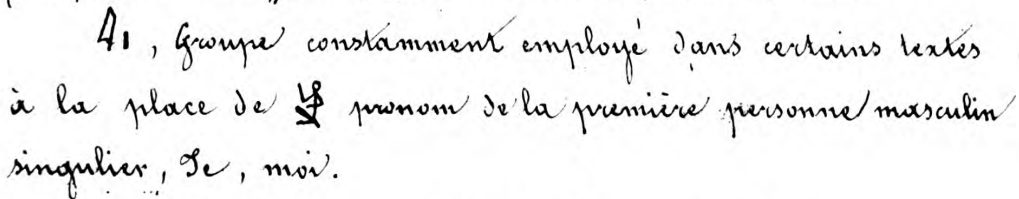 , Groupe constamment employé dans certains textes
à la place de pronom de la première personne masculin
singulier, Je, moi.